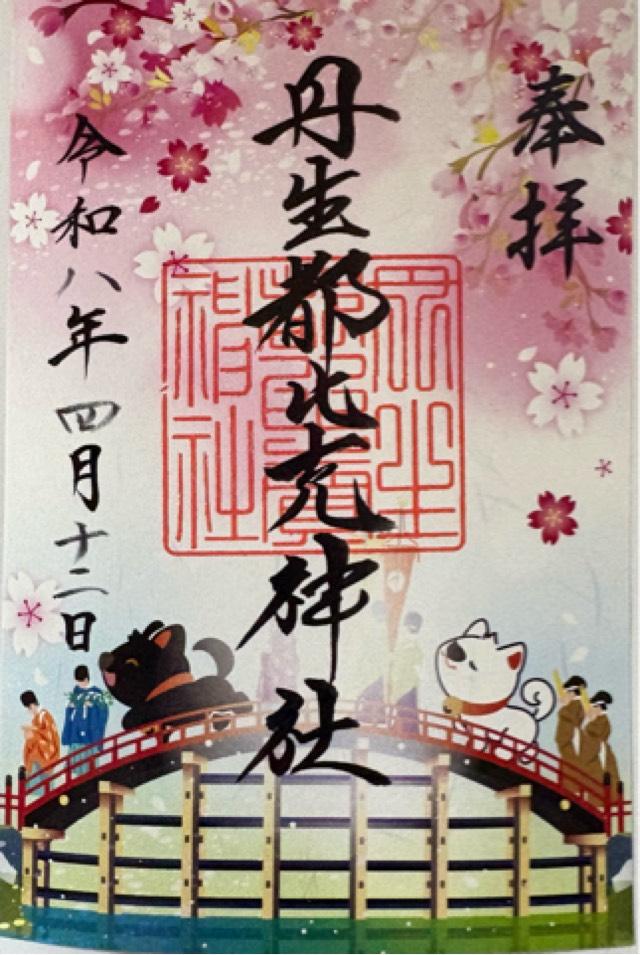 奉拝
丹生都比売神社
丹生都比賣神社
令和八年四月十二日